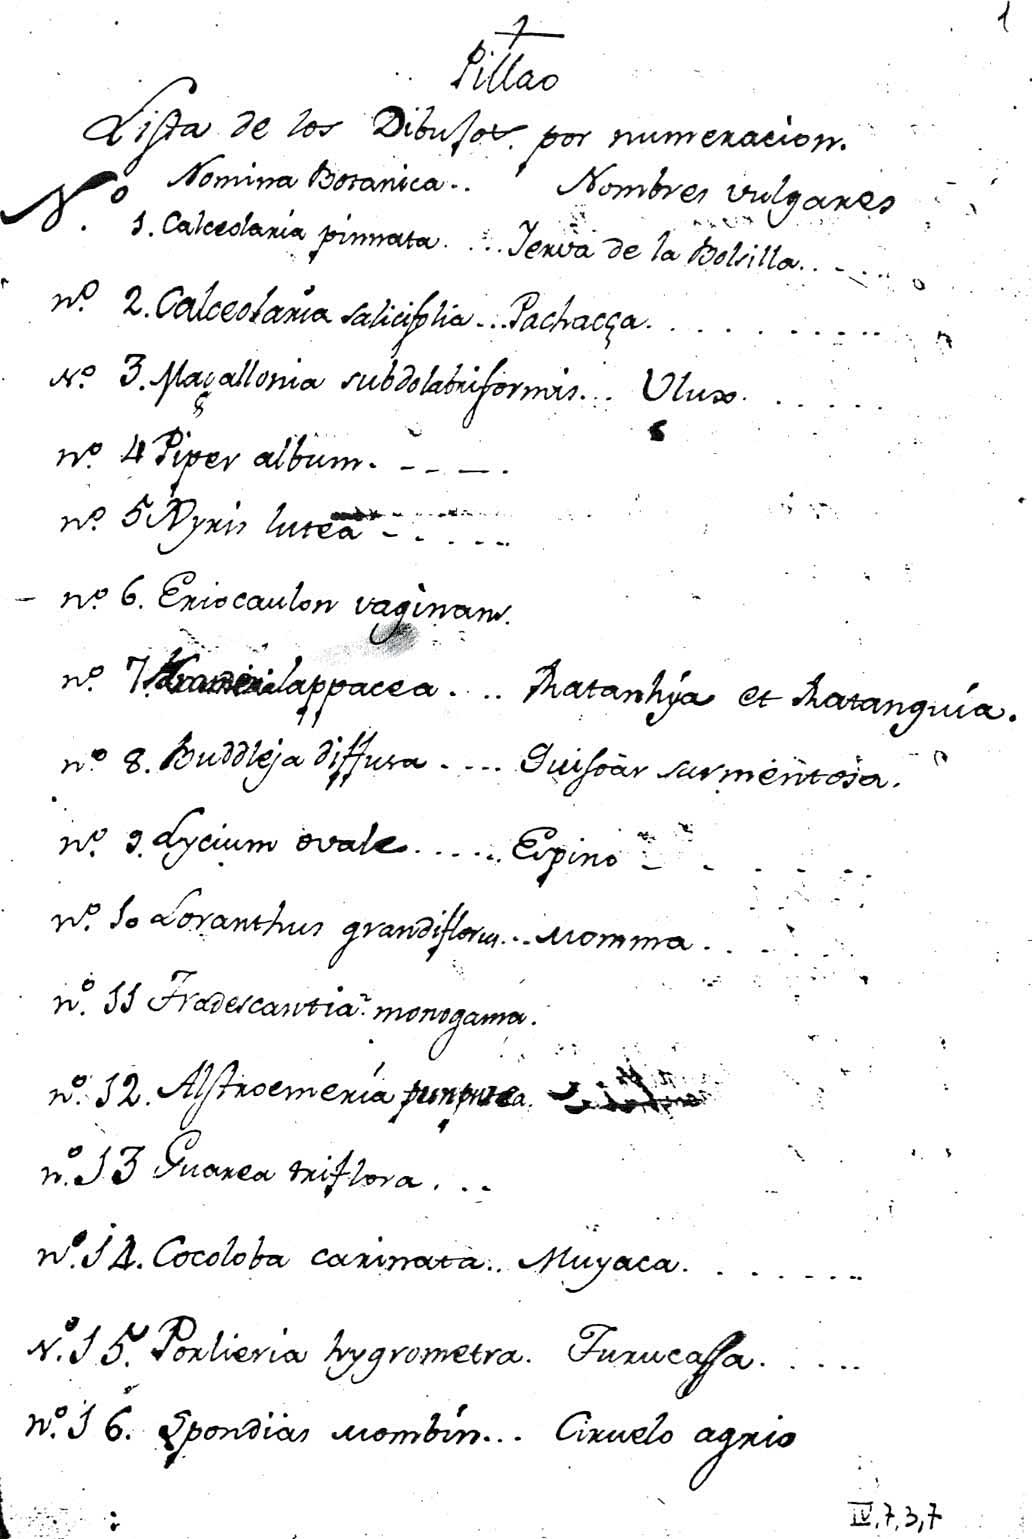 1
Pillao
Lista de los Dibujos por numeracion.
Nomina Botanica.. Nombres vulgares
N.º 1. Calceolaria pinnata.... Jerva de la Bolsilla......
nº. 2. Calceolaria salicifolia... Pachacça..........
Nº. 3. Maçallonia subdolabriformis... Ulux......
nº. 4 Piper album. - - - .
nº. 5 Xyris lutea - . . . .
nº. 6. Eriocaulon vaginans.
nº. 7. lappacea.... Ratanhýa et Ratanguía.
nº 8. Buddleja diffusa.... Quisoar surmentosa.
nº. 9. Lycium ovale...... Espino
nº. 10 Loranthus grandiflorus... Momma....
nº. 11 Tradescantia monogama.
nº. 12. Alstroemeria purpurea.
nº. 13 Guarea triflora....
nº. 14. Cocoloba carinata.. Muyaca........
N.º 15. Porlieria hygrometra. Turucassa......
nº. 16. Spondias Mombin... Ciruelo agrio
IV,7,3,7